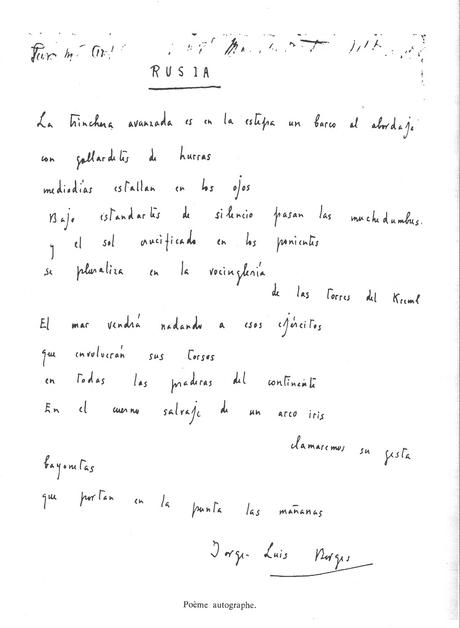 RUSIA
La trinchera avanzada es en la estepa un barco al abordaje
con gallardetes de hurras
mediodías estallan en los ojos
Bajo estandartes de silencio pasan las muchedumbres.
y el sol crucificado en los ponientes
se pluraliza en la vocinglería
de las torres del Kreml
El mar vendrá nadando a esos ejércitos
que envolverán sus torsos
en todas las praderas del continente
En el cuerno salvaje de un arco iris
clamaremos su gesta
bayonetas
que portan en la punta las mañanas
Jorge-Luis Borges
Poème autographe.